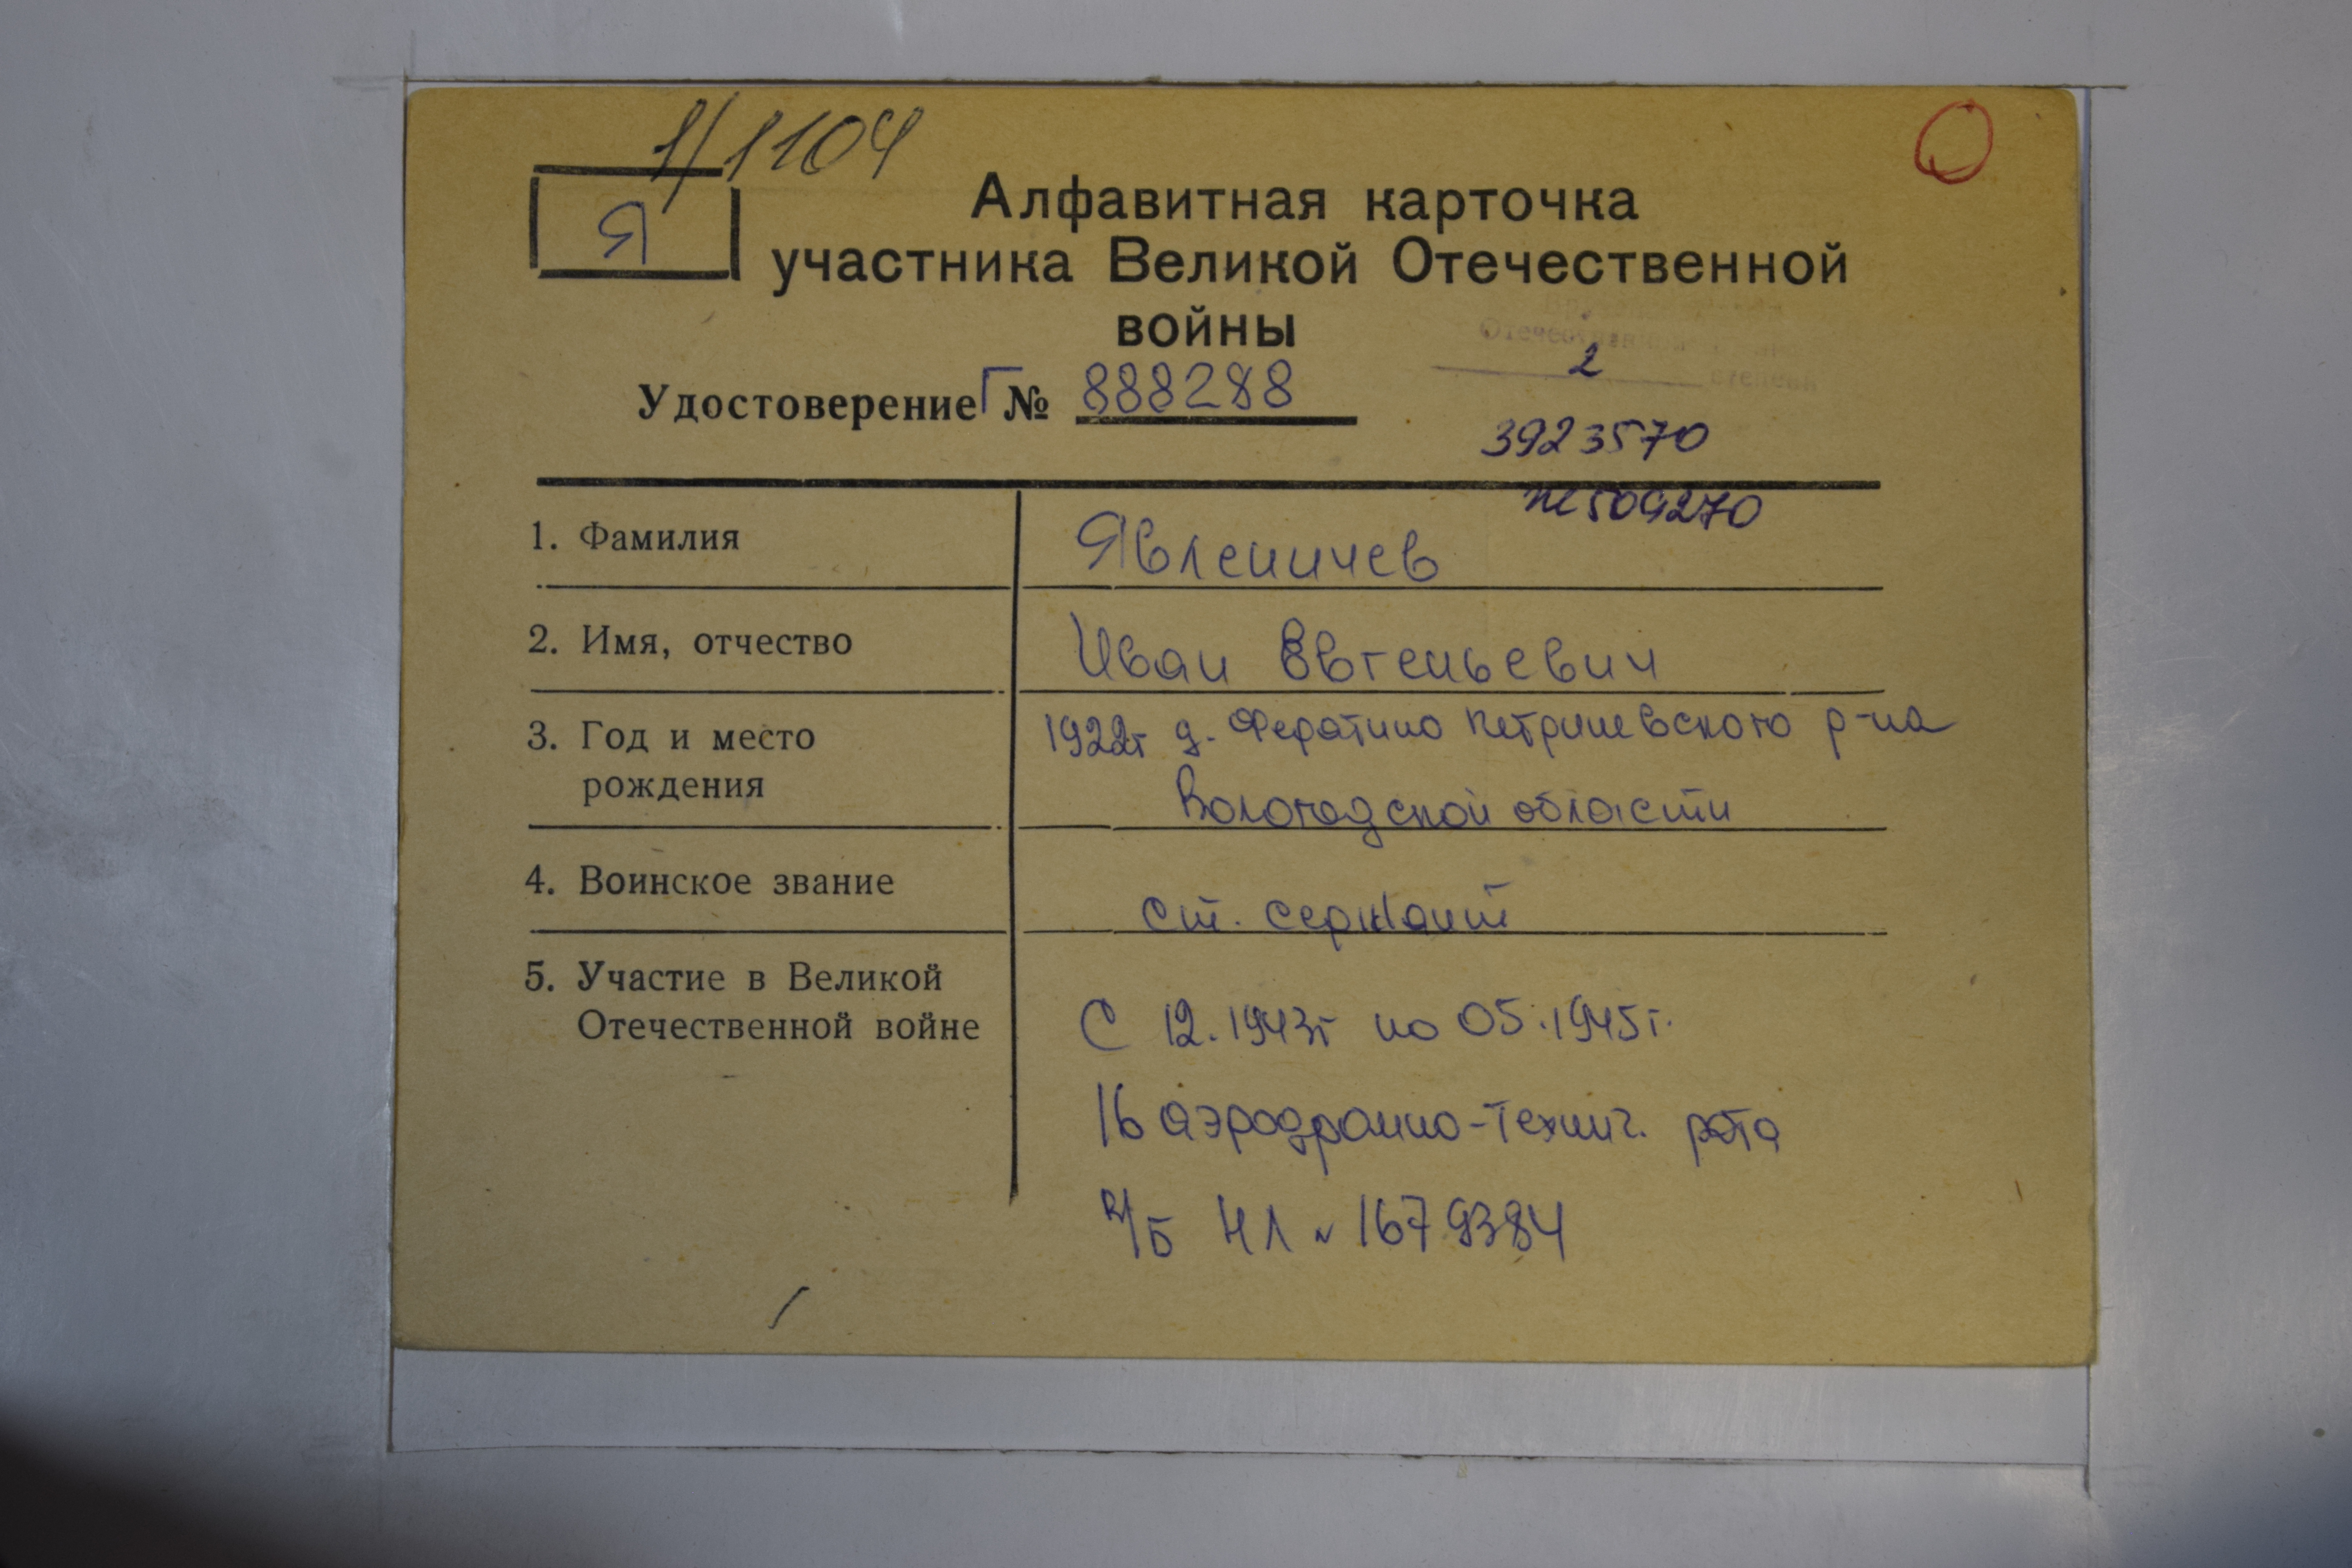 1/1104
Я
Алфавитная карточка
участника Великой Отечественной
войны
Отечественной
2
степень
Удостоверение Г № 888288
3923570
№ 509270
1. Фамилия Явленичев
2. Имя, отчество Иван Евгеньевич
3. Год и место 1922г д. Ферятино Петриневского р-на
рождения Вологодской области
4. Воинское звание ст. сержант
5. Участие в Великой
Отечественной войне С 12.1943г по 05.1945г.
16 аэродромно-технич. рота
в/б НЛ № 1679384